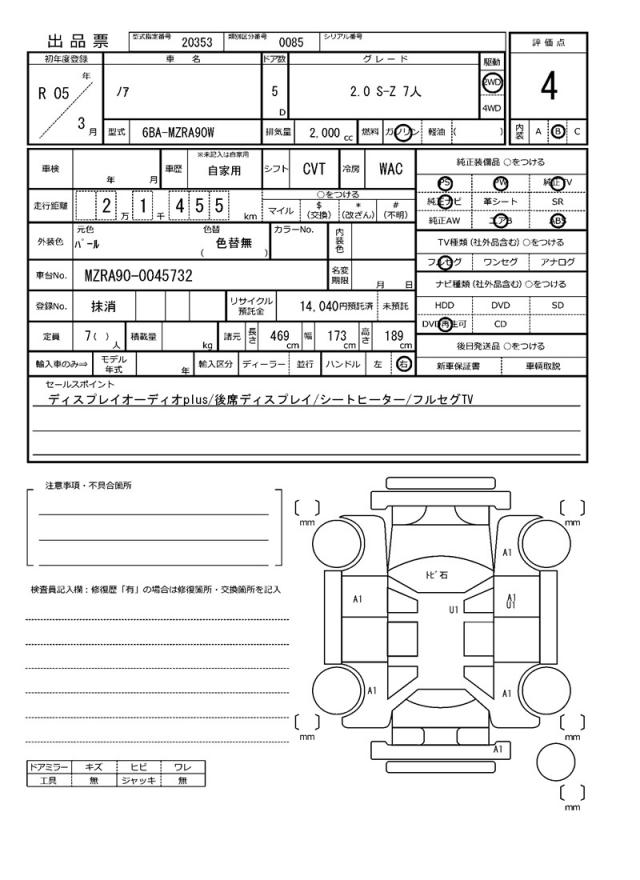 出品票 型式指定番号 20353 類別区分番号 0085 シリアル番号
評価点
4
内装 A B C
初年度登録 車名 ドア数 グレード 駆動
R 05 年 3 月 ﾉｱ 5 D 2.0 S-Z 7人 2WD
4WD
型式 6BA-MZRA90W 排気量 2,000 cc 燃料 ガソリン 軽油 ( )
車検 年 月 車歴 ※未記入は自家用 自家用 シフト CVT 冷房 WAC
走行距離 2 万 1 千 4 5 5 km ○をつける
マイル $(交換) *(改ざん) #(不明)
外装色 元色 ﾊﾟｰﾙ 色替 色替無 ( ) カラーNo. 内装色
車台No. MZRA90-0045732 名変期限 月 日
登録No. 抹消 リサイクル預託金 14,040円預託済 未預託
定員 7( )人 積載量 kg 諸元 長さ 469 cm 幅 173 cm 高さ 189 cm
輸入車のみ⇒ モデル年式 年 輸入区分 ディーラー 並行 ハンドル 左 右
純正装備品 ○をつける
PS PW 純正TV
純正ナビ 革シート SR
純正AW エアB ABS
TV種類 (社外品含む) ○をつける
フルセグ ワンセグ アナログ
ナビ種類 (社外品含む) ○をつける
HDD DVD SD
DVD再生可 CD
後日発送品 ○をつける
新車保証書 車輌取説
セールスポイント
ディスプレイオーディオplus/後席ディスプレイ/シートヒーター/フルセグTV
注意事項・不具合箇所
検査員記入欄：修復歴「有」の場合は修復箇所・交換箇所を記入
ドアミラー キズ ヒビ ワレ
工具 無 ジャッキ 無
mm mm
A1
ﾄﾋﾞ石
A1 U1 A1
U1
A1 A1
mm mm
A1
mm